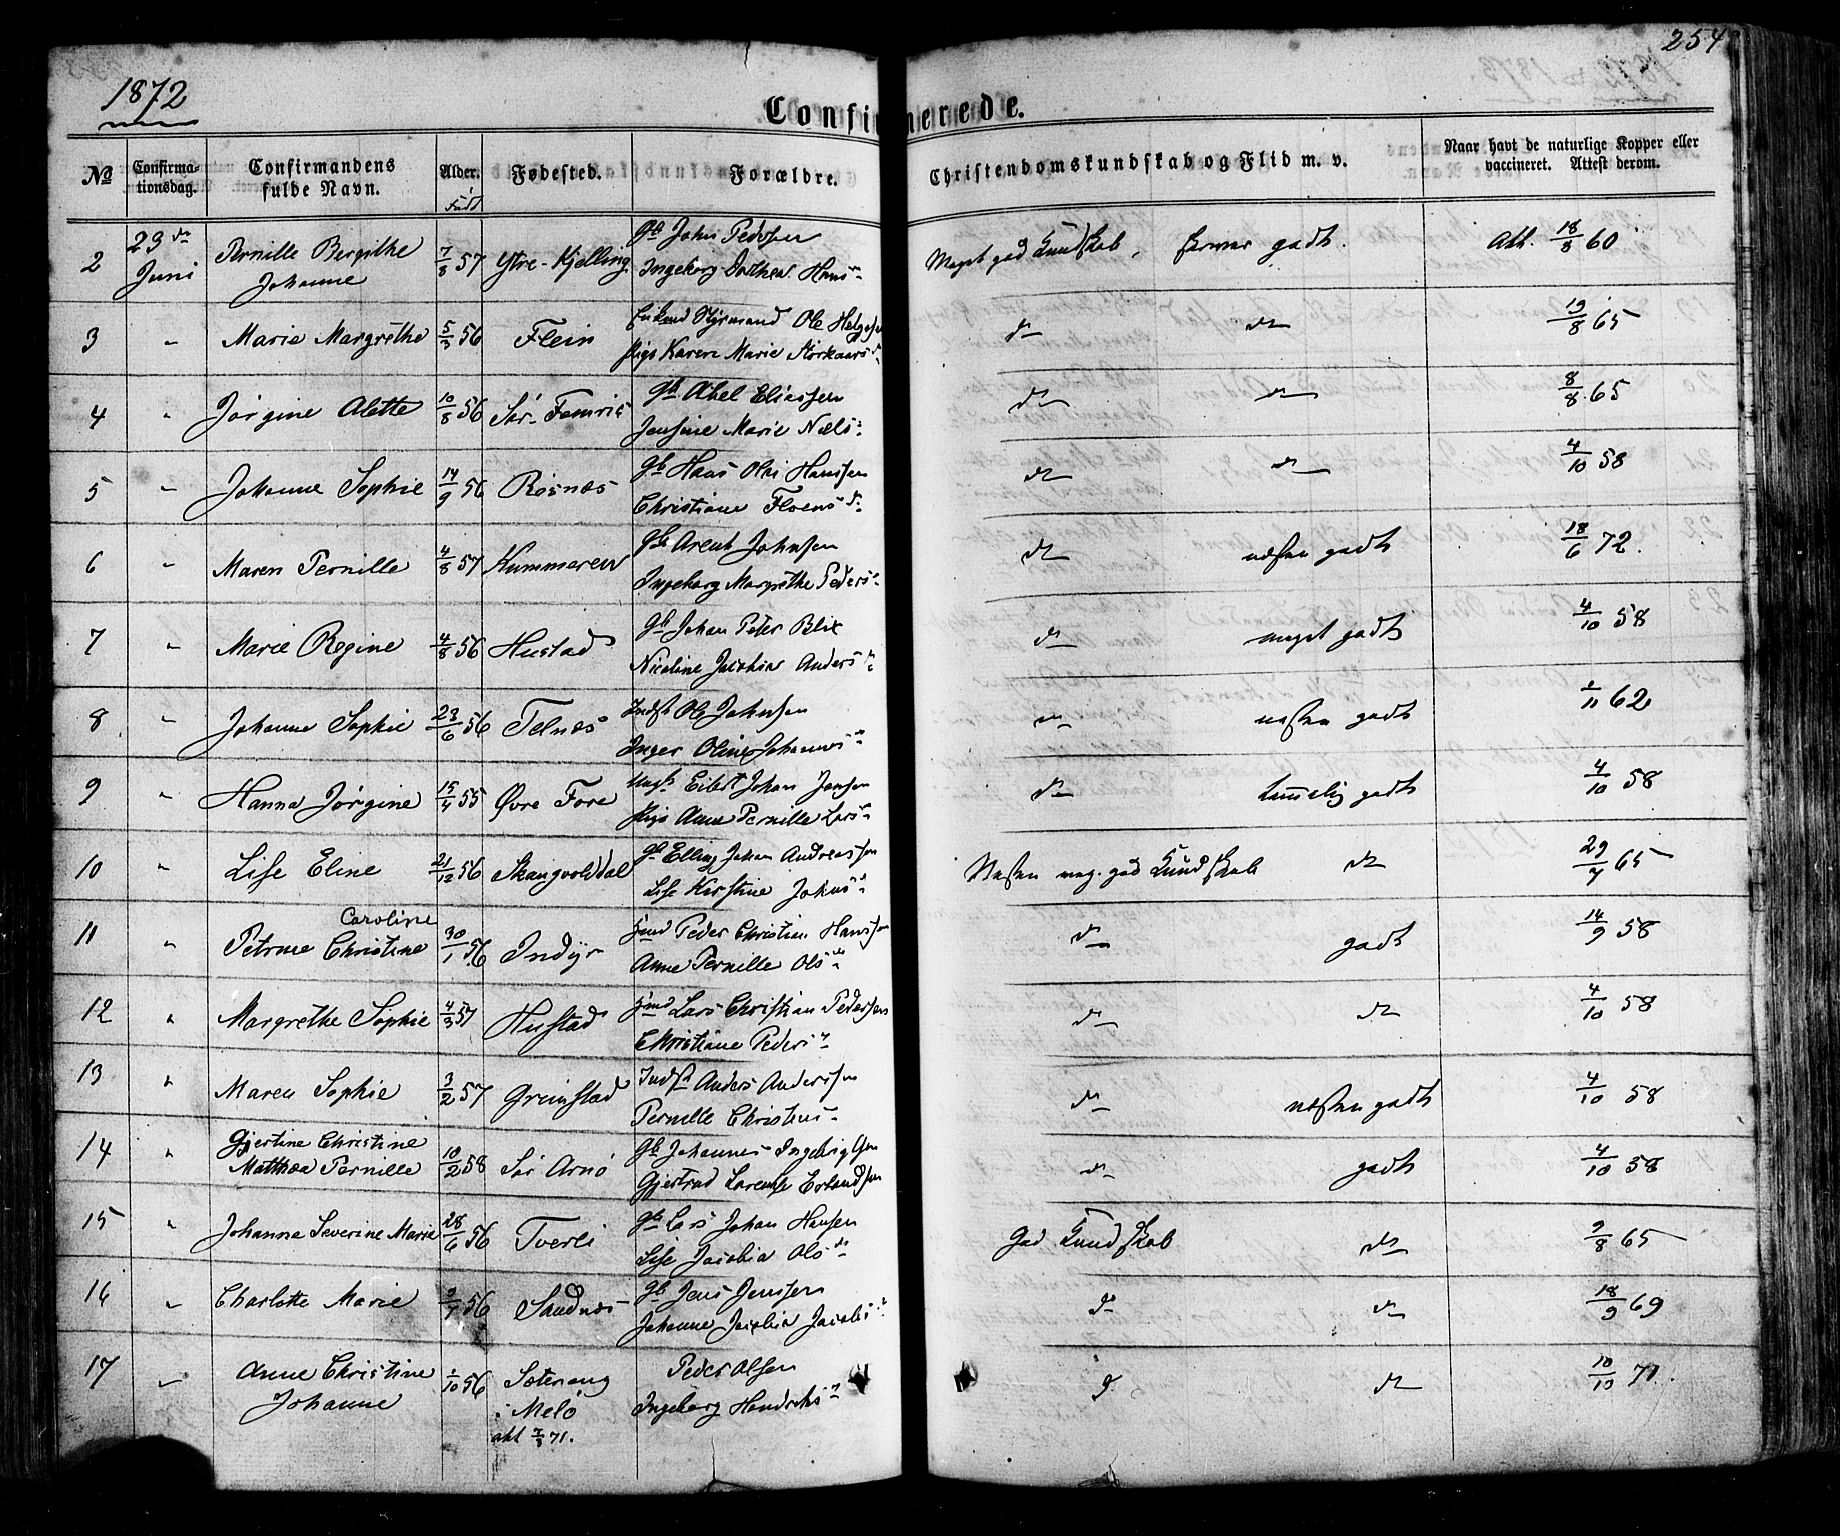 254
1872
Confirmerede.
No
Confirma-
tionsdag.
Confirmandens
fulde Navn.
Alder.
Født
Fødested.
Forældre.
Christendomskundskab og Flid m. v.
Naar havt de naturlige Kopper eller
vaccineret. Attest derom.
2 23de Juni Pernille Bergithe Johanne 7/8 57 Ytre-Kjelling
Gb John Pedersen
Ingeborg Dorthea Hansd
Meget god Kundskab, godt. Att. 18/8 60
3 " Marie Margrethe 5/3 56 Flein
Enkemd Styrmand Ole Helgesen
Pige Karen Marie Storkaarsd
do do 19/8 65
4 " Jørgine Alette 10/8 56 Sør-Famvig
Gb Abel Eliassen
Jensine Marie Næls
do do 8/8 65
5 " Johanne Sophie 14/9 56 Rosnæs
Gb Haas Olai Hanssen
Christiane Floensd
do do 4/10 58
6 " Maren Pernille 4/8 57 Kummeren
Gb Arent Johnsen
Ingeborg Margrethe Peders
do næsten godt 18/6 72.
7 " Marie Regine 4/8 56 Hustad
Gb Johan Peter Blix
Nicoline Jacobia Anders
do meget godt 4/10 58
8 " Johanne Sophie 23/6 56 Telnæs
Indst Ole Johnsen
Inger Oline Johannes
do næsten godt 1/11 62
9 " Hanna Jørgine 15/4 55 Øvre Fore
Ungk Eilert Johan Jensen
Pige Anne Pernille Lars
do temmelig godt 4/10 58
10 " Lise Eline 21/12 56 Skangvolddal
Gb Elling Johan Andreassen
Lise Kirstine Johns
Næsten meg. god Kundskab do 29/7 65
11 " Petrine Caroline Christine 30/1 56 Indyr
Hmd Peder Christian Hanssen
Anne Pernille Olsd
do godt 14/9 58
12 " Margrethe Sophie 4/3 57 Hustad
Hmd Lars Christian Pedersen
Christiane Peders
do do 4/10 58
13 " Maren Sophie 3/2 57 Grimstad
Indst Anders Anderssen
Pernille Christens
do næsten godt 4/10 58
14 " Gjertine Christine Matthea Pernille 10/2 58 Sør Arnø
Gb Johannes Ingebrigtsen
Gjertrud Lorentse Erlandsen
do godt 4/10 58
15 " Johanna Severine Marie 28/6 56 Tverli
Gb Lars Johan Hansen
Lise Jacobia Olsd
God Kundskab do 9/8 65
16 " Charlotte Marie 9/7 56 Sandnæs
Gb Jens Jenssen
Johanne Jacobia Jacobs
do do 18/9 69
17 " Anne Christine Johanne 1/10 56 Sæterang
i Melø
att 7/3 71.
Peder Olsen
Ingeborg Hendriks
d. do 10/10 71.